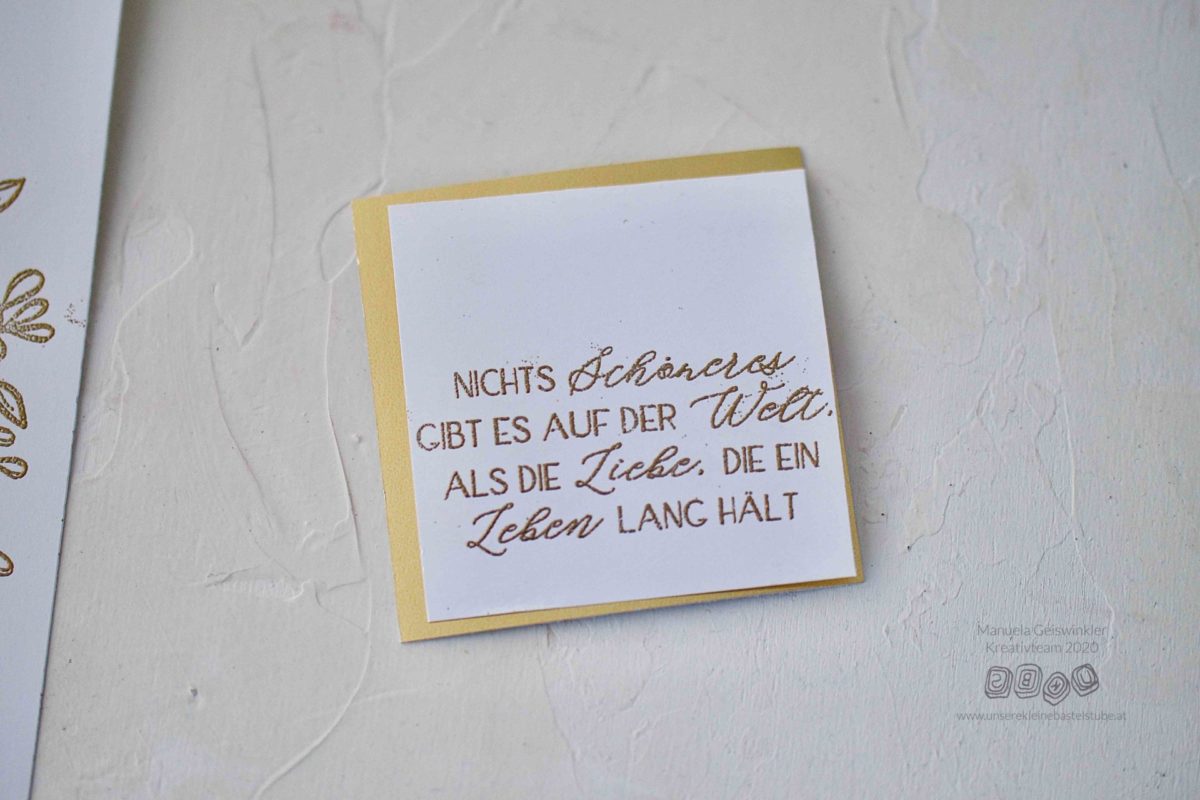 NICHTS Schöneres
GIBT ES AUF DER Welt,
ALS DIE Liebe, DIE EIN
Leben LANG HÄLT
Manuela Geiswinkler
Kreativteam 2020
www.unserekleinebastelstube.at